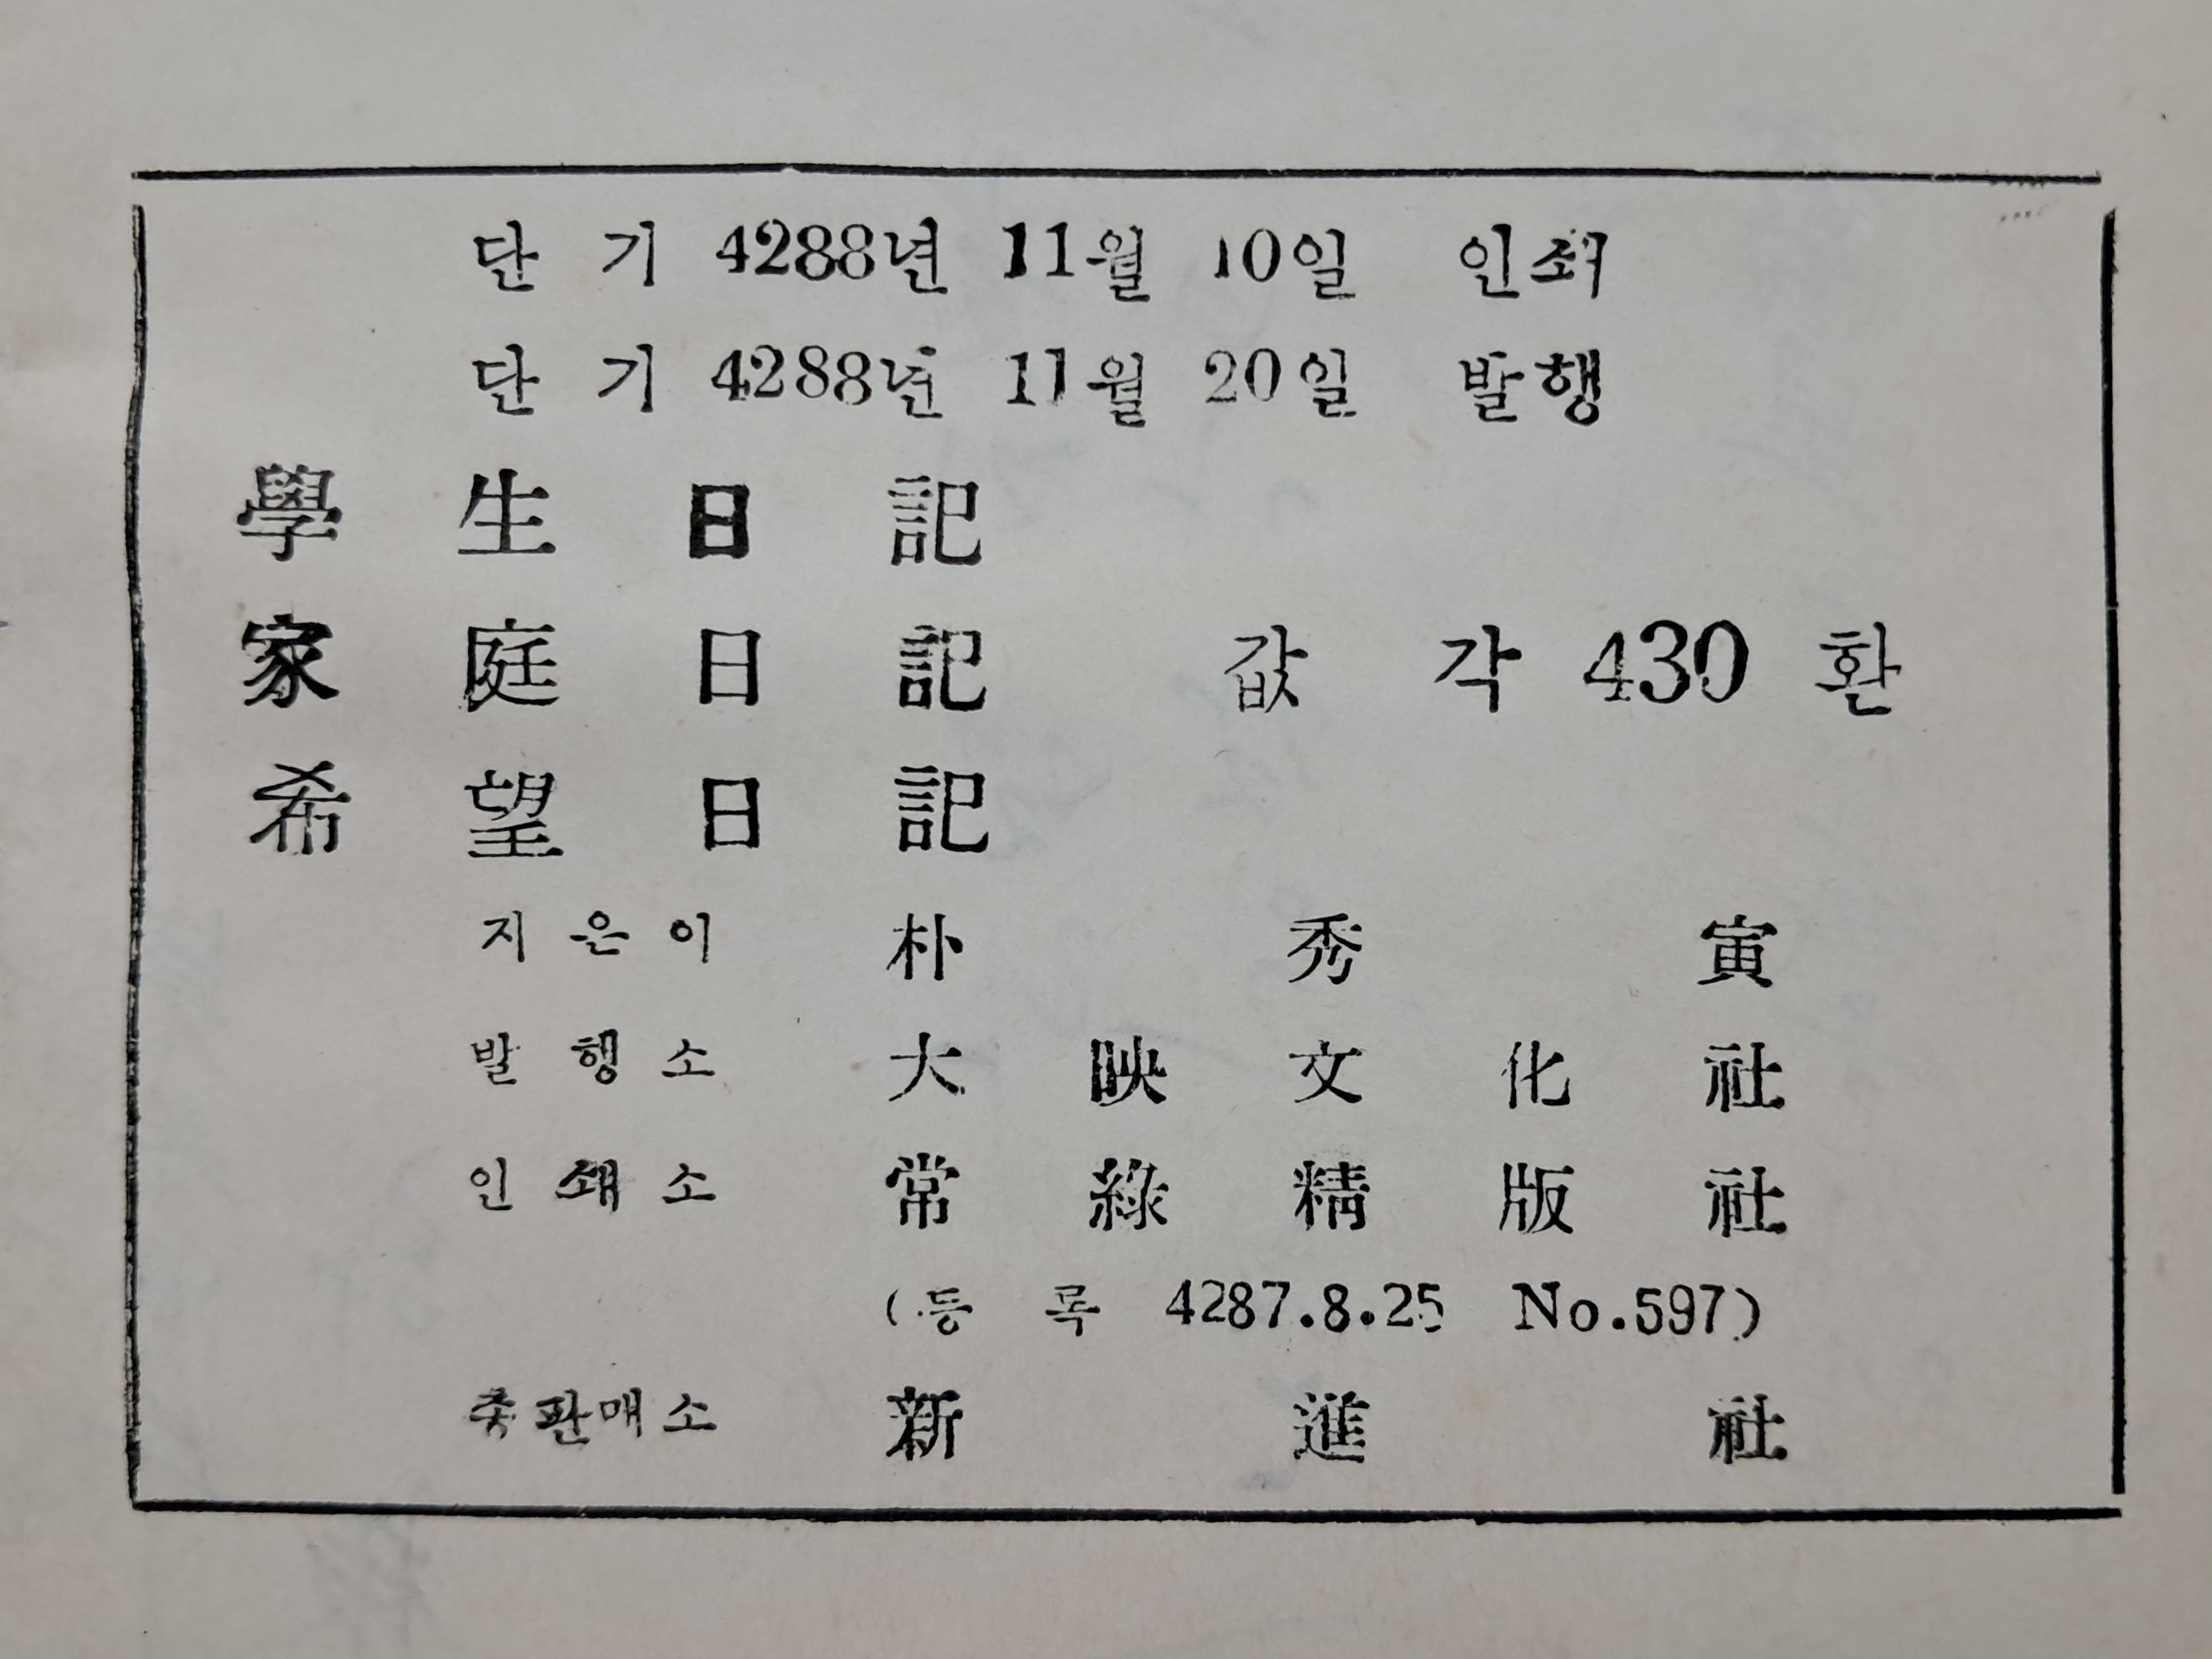 단 기 4288년 11월 10일 인쇄
단 기 4288년 11월 20일 발행
學 生 日 記
家 庭 日 記 값 각 430 환
希 望 日 記
지 은 이 朴 秀 寅
발 행 소 大 映 文 化 社
인 쇄 소 常 綠 精 版 社
(등 록 4287.8.25 No.597)
총판매소 新 進 社